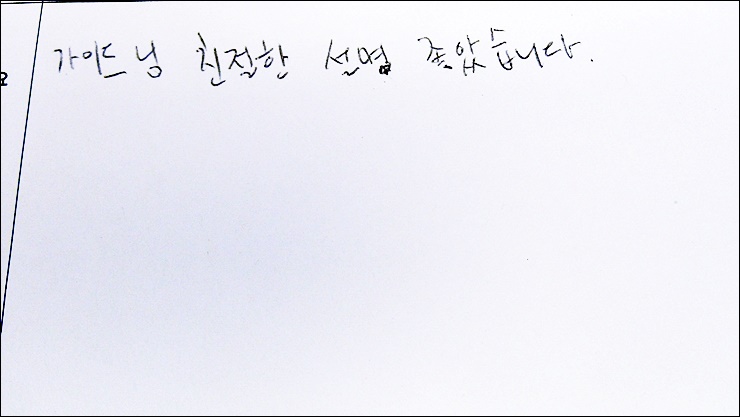 가이드님 친절한 설명 좋았습니다.